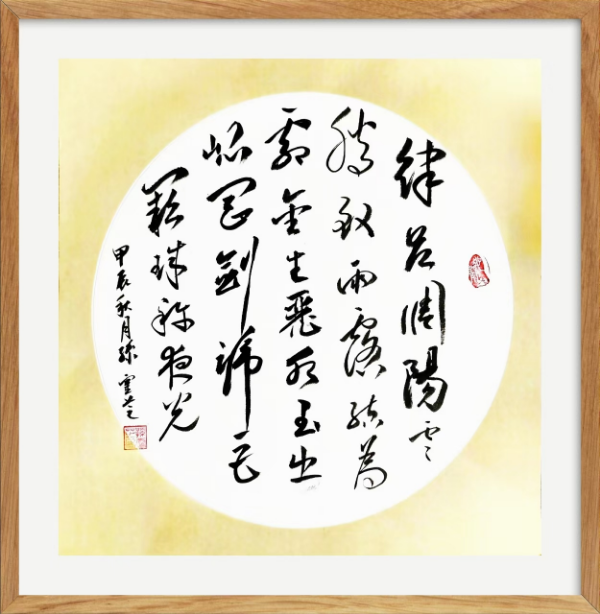 律吕調陽雲
騰致雨露結為
霜金生麗水玉出
崐岡劍號巨
闕珠稱夜光
甲辰秋月